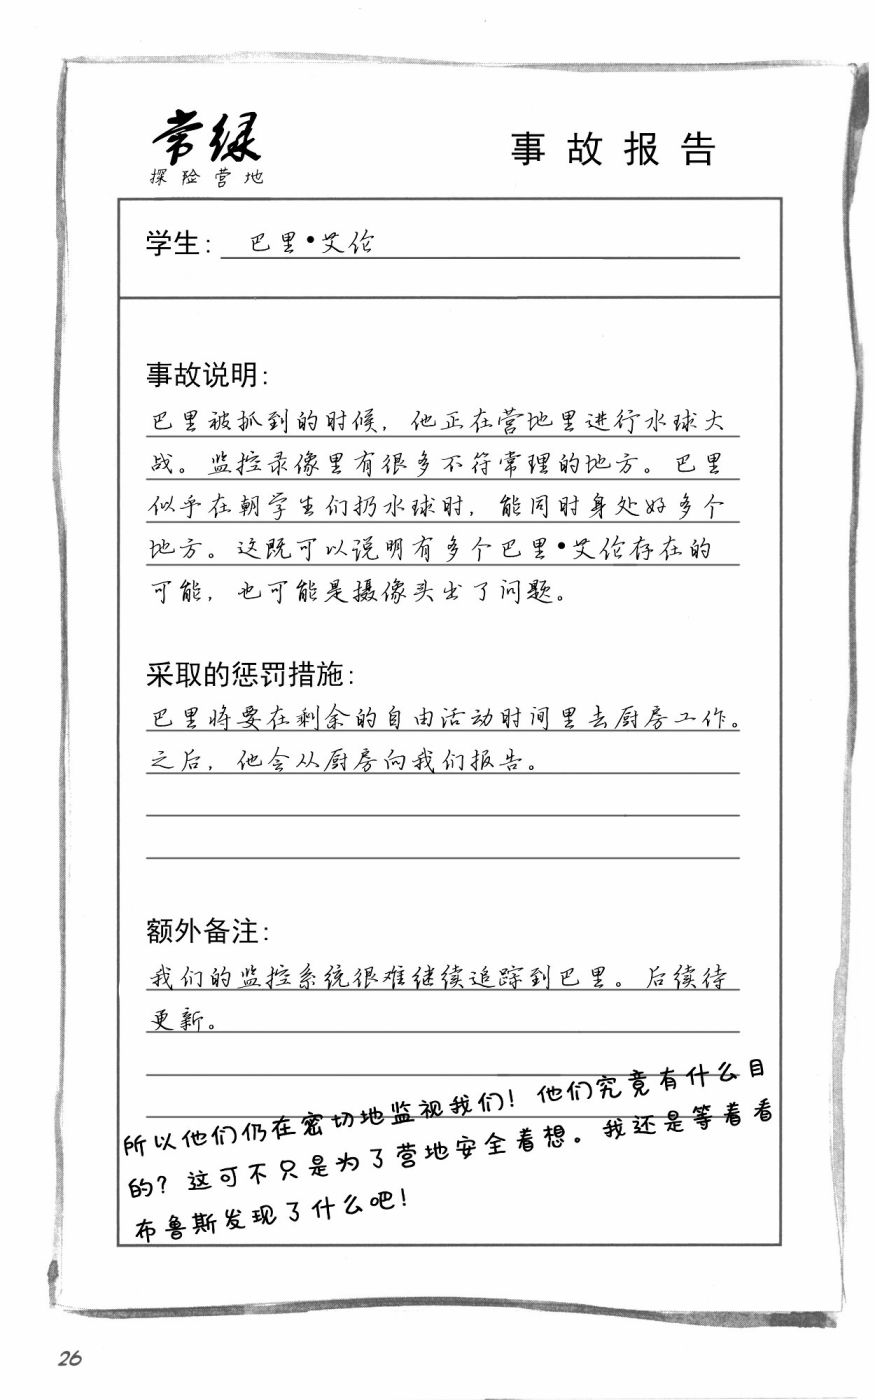 常绿
探险营地
事故报告
学生：巴里·艾伦
事故说明：
巴里被抓到的时候，他正在营地里进行水球大
战。监控录像里有很多不符常理的地方。巴里
似乎在朝学生们扔水球时，能同时身处好多个
地方。这既可以说明有多个巴里·艾伦存在的
可能，也可能是摄像头出了问题。
采取的惩罚措施：
巴里将要在剩余的自由活动时间里去厨房工作。
之后，他会从厨房向我们报告。
额外备注：
我们的监控系统很难继续追踪到巴里。后续待
更新。
所以他们仍在密切地监视我们！他们究竟有什么目
的？这可不只是为了营地安全着想。我还是等着看
布鲁斯发现了什么吧！
26